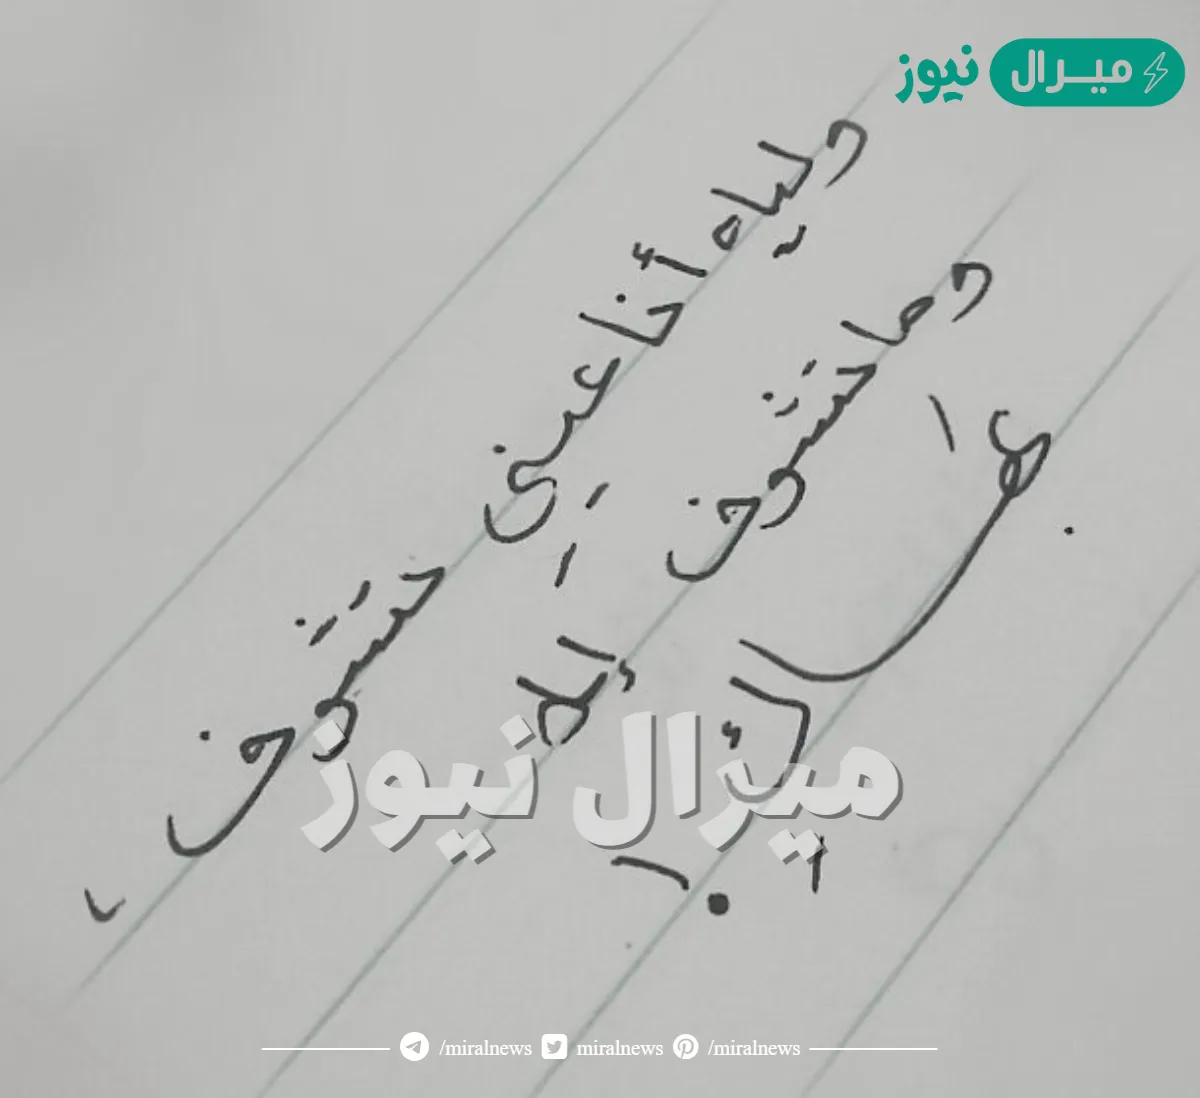 ميرال نيوز
وليه أنا عيني تشوف ،
وما تشوف إلا
ميرال نيوز
/miralnews miralnews /miralnews